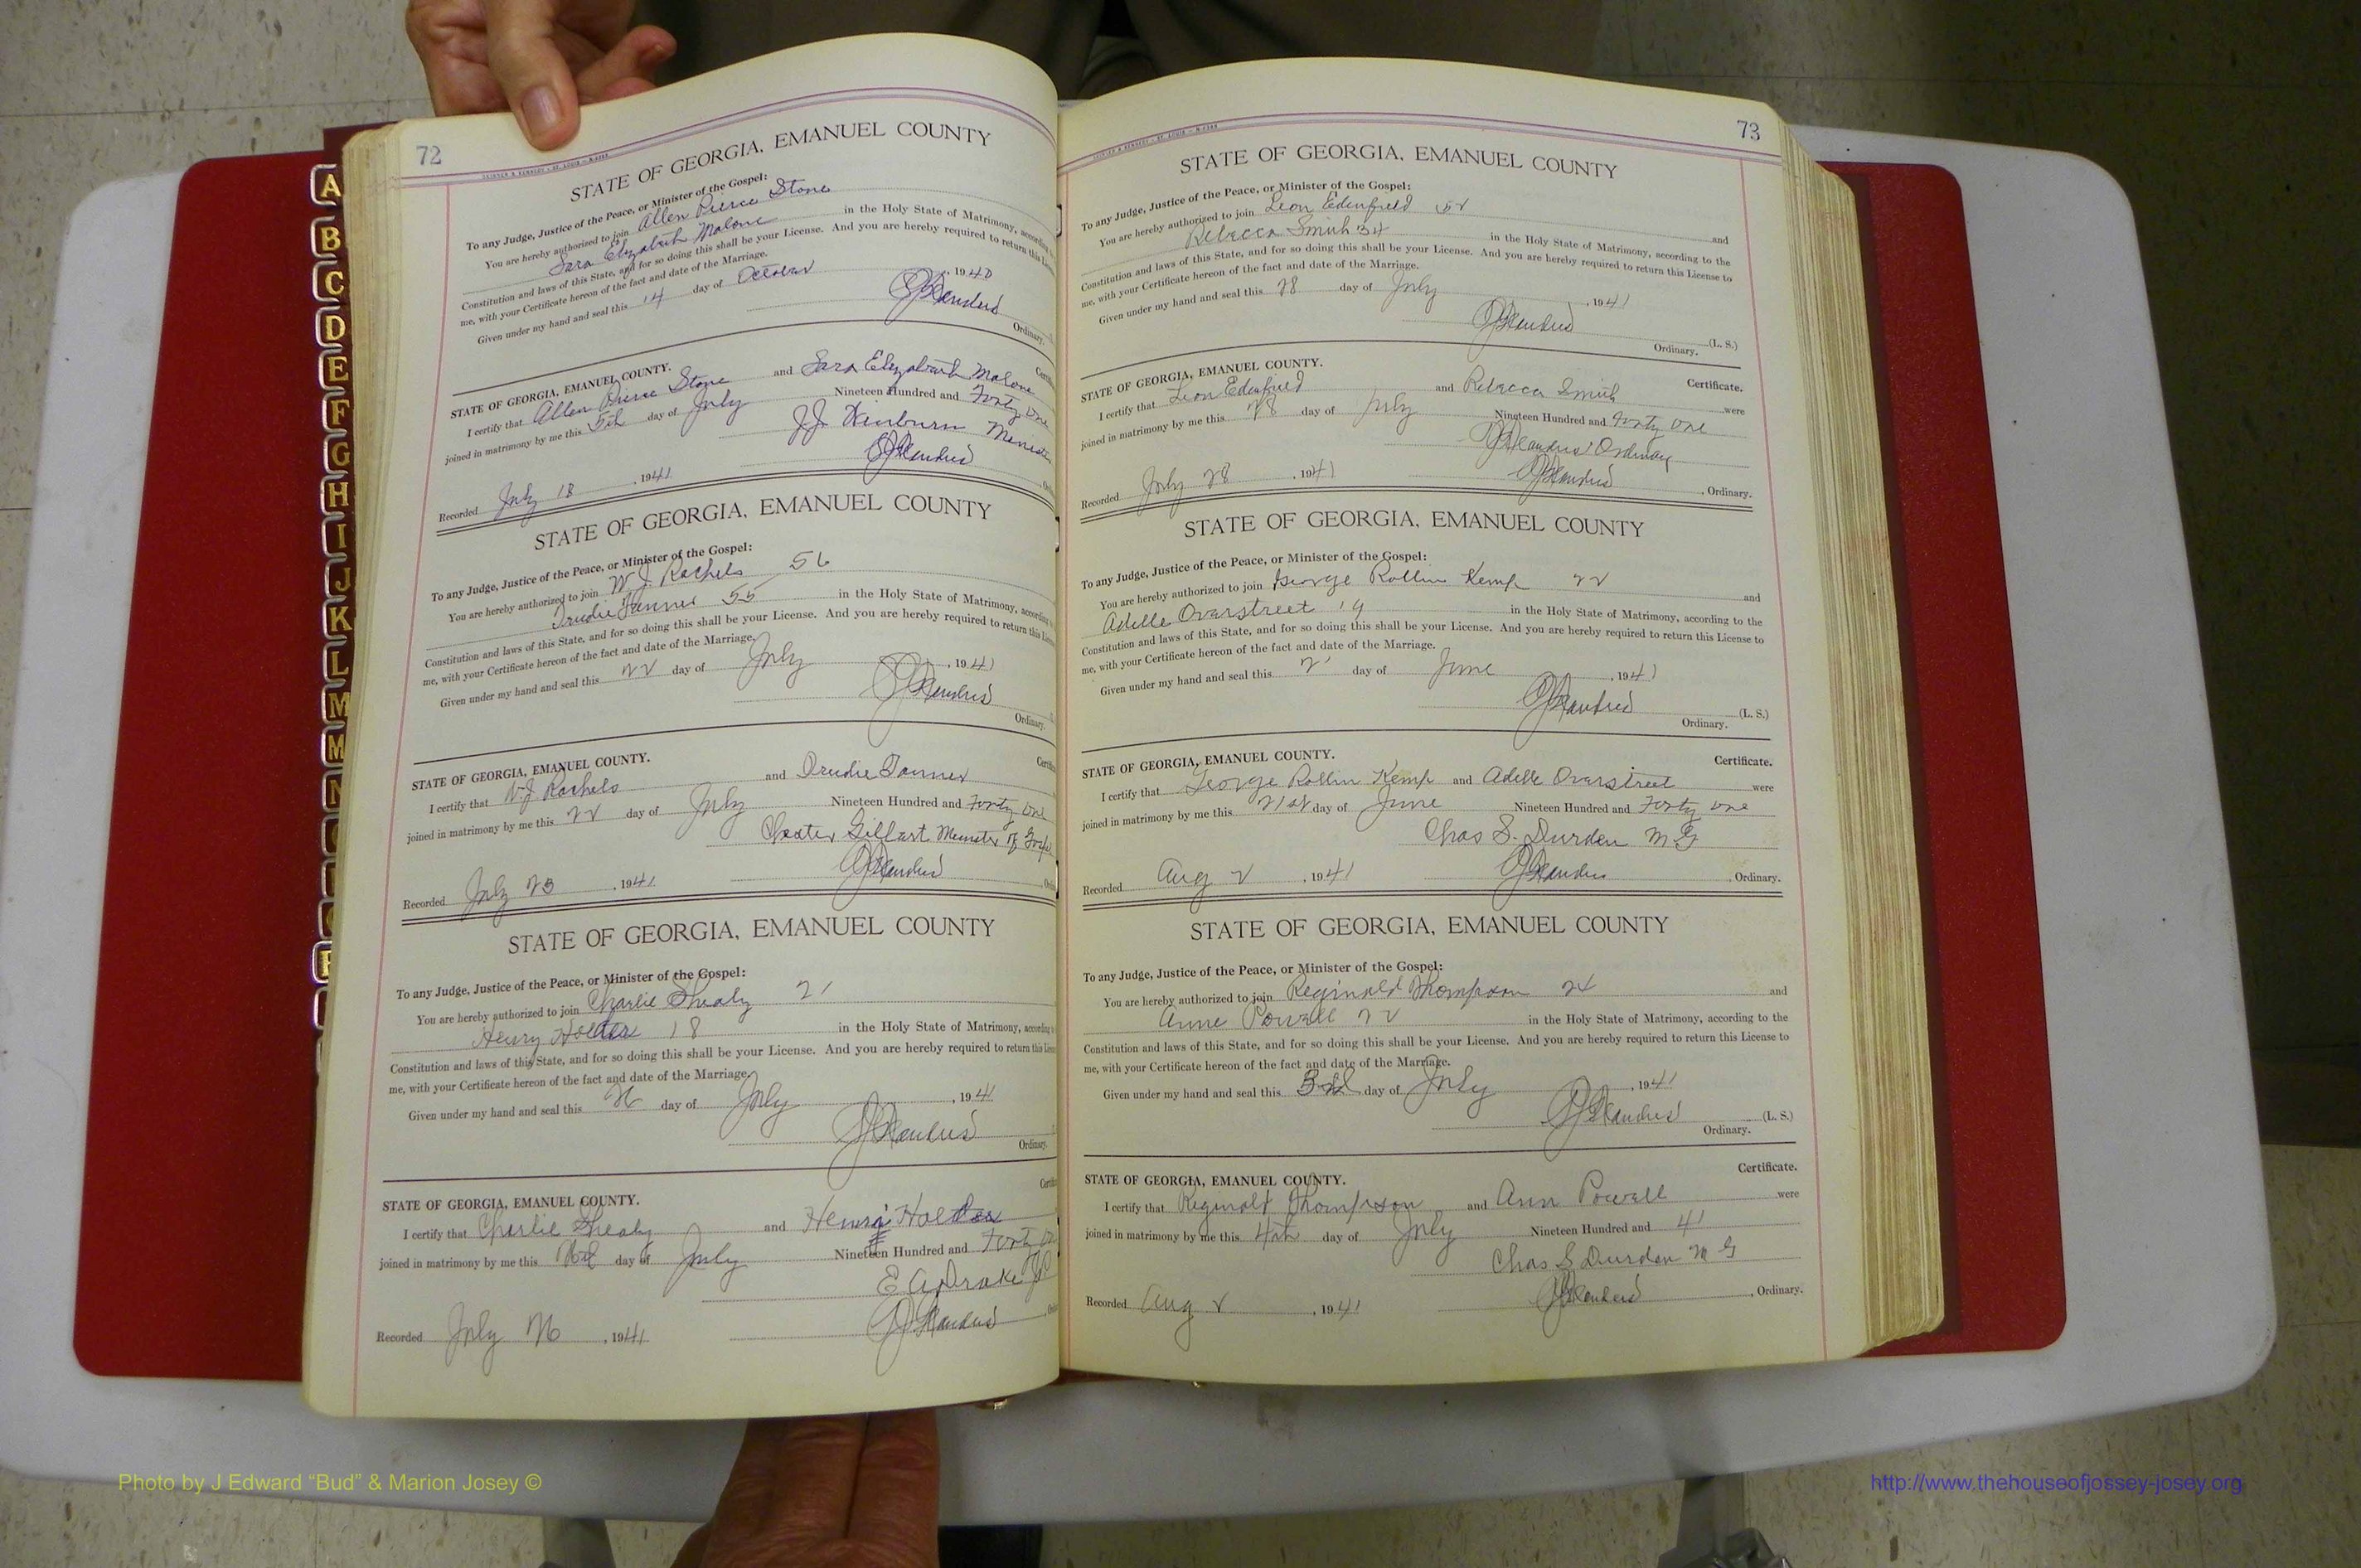 72
STATE OF GEORGIA, EMANUEL COUNTY
To any Judge, Justice of the Peace, or Minister of the Gospel:
You are hereby authorized to join Allen Pierce Stone
Sara Elizabeth Malone in the Holy State of Matrimony, according
Constitution and laws of this State, and for so doing this shall be your License. And you are hereby required to return this
me, with your Certificate hereon of the fact and date of the Marriage.
Given under my hand and seal this 14 day of October, 1940
Ordinary.
STATE OF GEORGIA, EMANUEL COUNTY.
I certify that Allen Pierce Stone and Sara Elizabeth Malone
joined in matrimony by me this 5th day of July Nineteen Hundred and Forty One
J.J. Winburn
Recorded July 18, 1941
STATE OF GEORGIA, EMANUEL COUNTY
To any Judge, Justice of the Peace, or Minister of the Gospel:
You are hereby authorized to join W. J. Rachels 56
Trudie Tanner 55 in the Holy State of Matrimony, according
Constitution and laws of this State, and for so doing this shall be your License. And you are hereby required to return this
me, with your Certificate hereon of the fact and date of the Marriage.
Given under my hand and seal this 22 day of July, 1941
Ordinary.
STATE OF GEORGIA, EMANUEL COUNTY.
I certify that W J Rachels and Trudie Tanner
joined in matrimony by me this 22 day of July Nineteen Hundred and Forty One
Recorded July 23, 1941
STATE OF GEORGIA, EMANUEL COUNTY
To any Judge, Justice of the Peace, or Minister of the Gospel:
You are hereby authorized to join Charlie Shealy 21
Henry Holder 18 in the Holy State of Matrimony, according
Constitution and laws of this State, and for so doing this shall be your License. And you are hereby required to return this
me, with your Certificate hereon of the fact and date of the Marriage.
Given under my hand and seal this 26 day of July, 1941
Ordinary.
STATE OF GEORGIA, EMANUEL COUNTY.
I certify that Charlie Shealy and Holder
joined in matrimony by me this day of July Nineteen Hundred and Forty
E A Drake
Recorded July 26, 1941
73
STATE OF GEORGIA, EMANUEL COUNTY
To any Judge, Justice of the Peace, or Minister of the Gospel:
You are hereby authorized to join Leon Edenfield 52 and
Rebecca Smith 34 in the Holy State of Matrimony, according to the
Constitution and laws of this State, and for so doing this shall be your License. And you are hereby required to return this License to
me, with your Certificate hereon of the fact and date of the Marriage.
Given under my hand and seal this 28 day of July, 1941
(L. S.)
Ordinary.
STATE OF GEORGIA, EMANUEL COUNTY. Certificate.
I certify that Leon Edenfield and Rebecca Smith were
joined in matrimony by me this 28 day of July Nineteen Hundred and Forty One
Ordinary
Recorded July 28, 1941, Ordinary.
STATE OF GEORGIA, EMANUEL COUNTY
To any Judge, Justice of the Peace, or Minister of the Gospel:
You are hereby authorized to join George Rollin Kemp 22 and
Adelle Overstreet 19 in the Holy State of Matrimony, according to the
Constitution and laws of this State, and for so doing this shall be your License. And you are hereby required to return this License to
me, with your Certificate hereon of the fact and date of the Marriage.
Given under my hand and seal this 21 day of June, 1941
(L. S.)
Ordinary.
STATE OF GEORGIA, EMANUEL COUNTY. Certificate.
I certify that George Rollin Kemp and Adelle Overstreet were
joined in matrimony by me this 21st day of June Nineteen Hundred and Forty One
Chas S. Durden M G
Recorded Aug 2, 1941, Ordinary.
STATE OF GEORGIA, EMANUEL COUNTY
To any Judge, Justice of the Peace, or Minister of the Gospel:
You are hereby authorized to join Reginald Thompson 24 and
Anne Powell 22 in the Holy State of Matrimony, according to the
Constitution and laws of this State, and for so doing this shall be your License. And you are hereby required to return this License to
me, with your Certificate hereon of the fact and date of the Marriage.
Given under my hand and seal this 3rd day of July, 1941
(L. S.)
Ordinary.
STATE OF GEORGIA, EMANUEL COUNTY. Certificate.
I certify that Reginald Thompson and Ann Powell were
joined in matrimony by me this 4th day of July Nineteen Hundred and 41
Chas S Durden M G
Recorded Aug 2, 1941, Ordinary.
A
B
C
D
E
F
G
H
I
J
K
L
M
M
N
Photo by J Edward “Bud” & Marion Josey ©
http://www.thehouseofjossey-josey.org